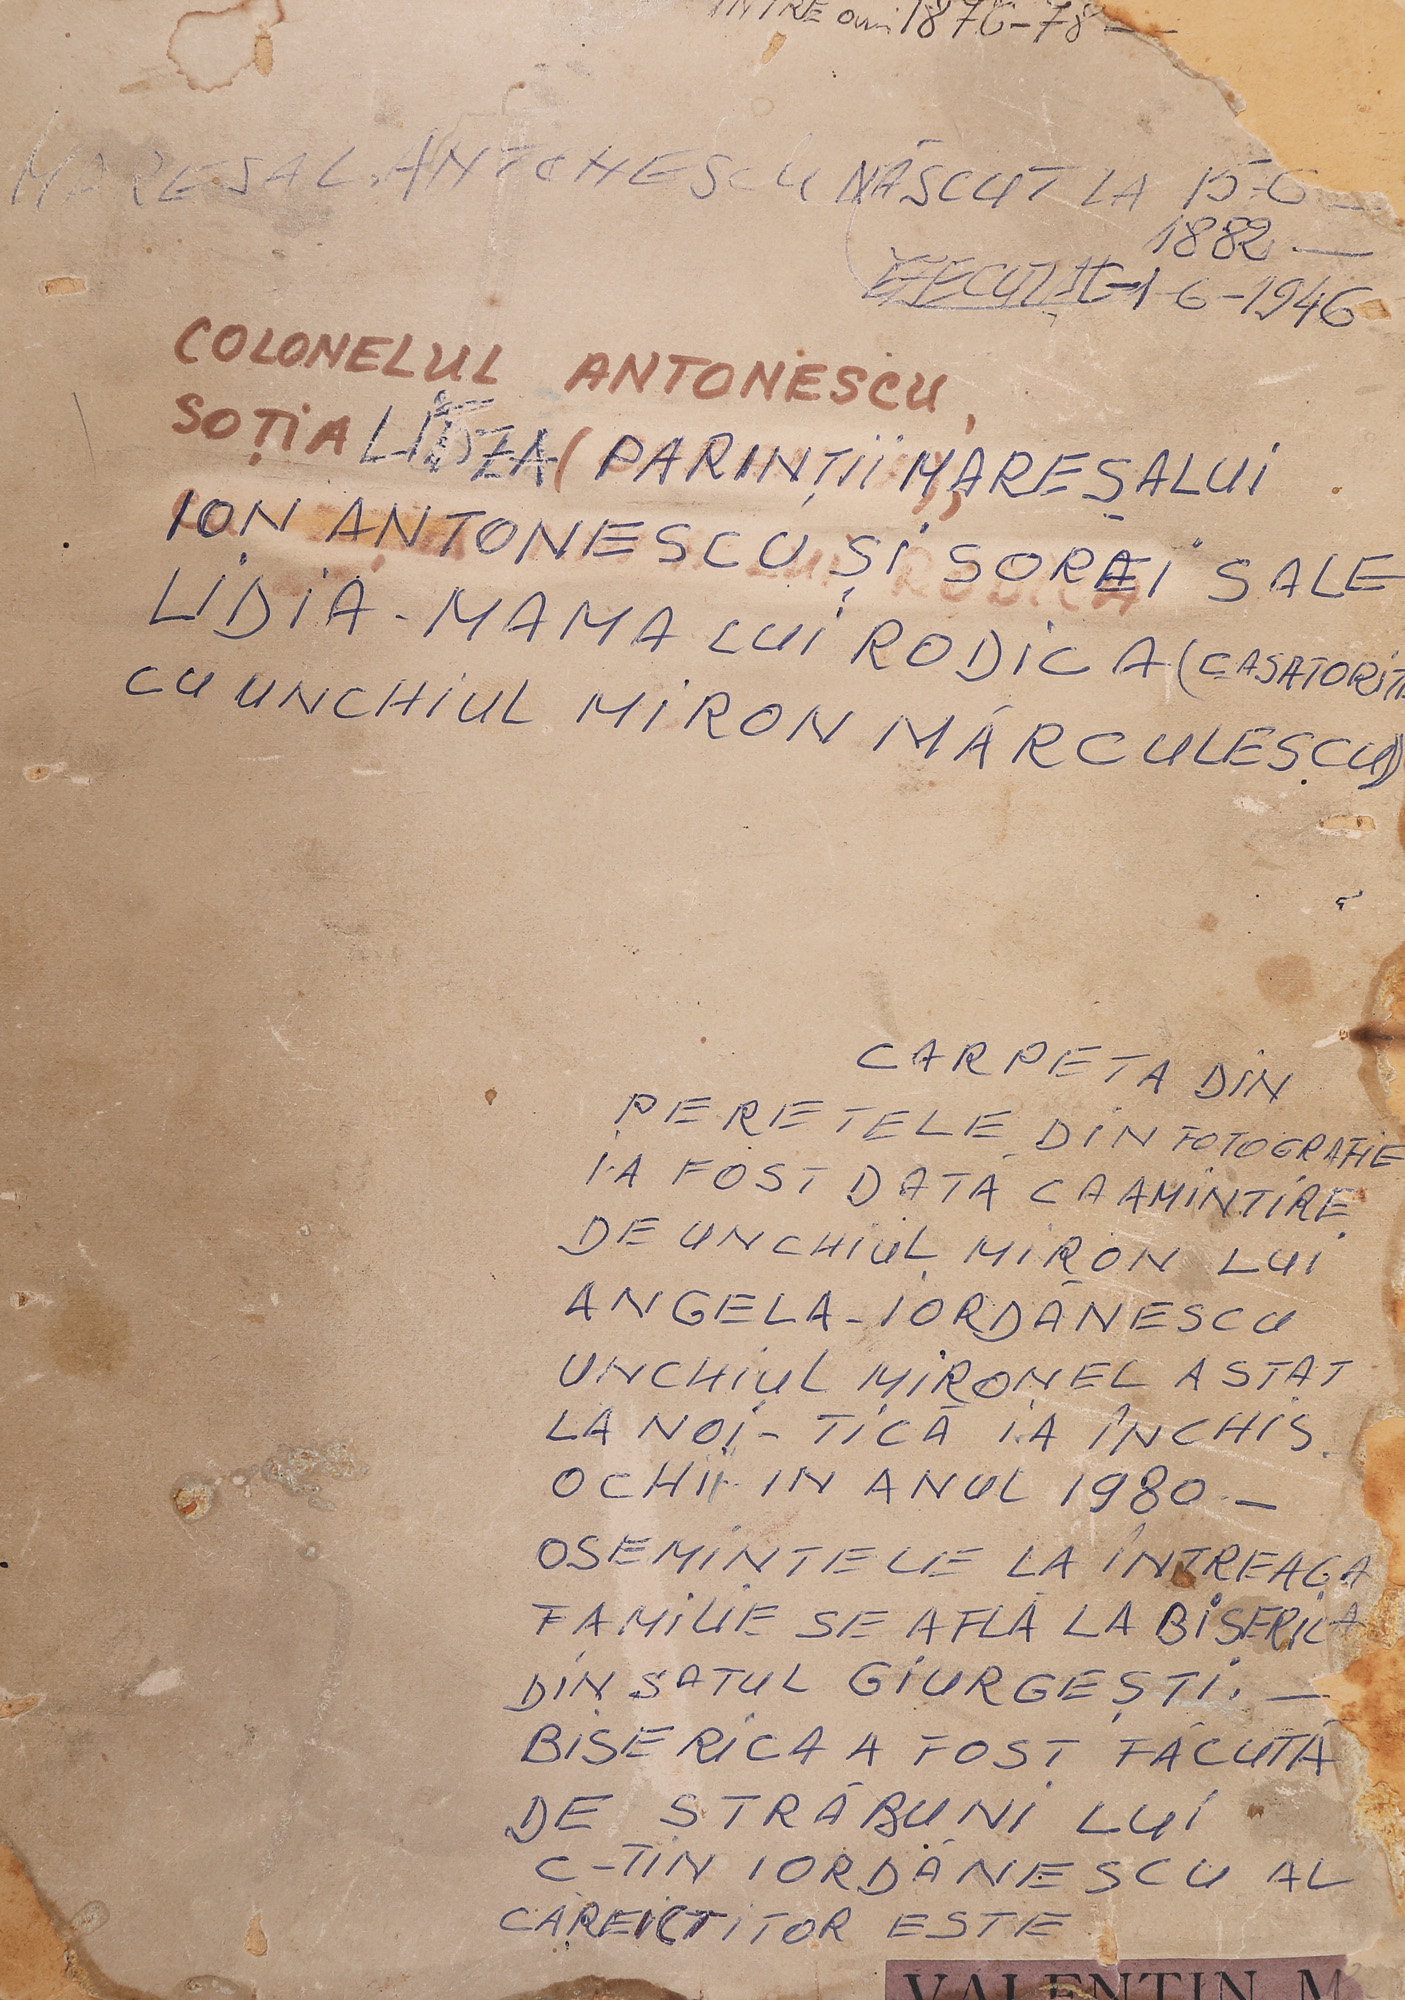 INTRE ani 1876-78 —
MARESAL. ANTONESCU NĂSCUT LA 15-6 —
1882 —
EXECUTAT-1-6-1946
COLONELUL ANTONESCU,
SOȚIA LIDIA (PARINȚII MAREȘALUI
ION ANTONESCU ȘI SOREI SALE
LIDIA - MAMA LUI RODICA (CASATORITĂ
CU UNCHIUL MIRON MĂRCULESCU)
CARPETA DIN
PERETELE DIN FOTOGRAFIE
I-A FOST DATĂ CA AMINTIRE
DE UNCHIUL MIRON LUI
ANGELA - IORDĂNESCU
UNCHIUL MIRONEL A STAT
LA NOI - TICĂ I-A ÎNCHIS
OCHII IN ANUL 1980 —
OSEMINTELE LA ÎNTREAGA
FAMILIE SE AFLĂ LA BISERICA
DIN SATUL GIURGEȘTI. —
BISERICA A FOST FĂCUTĂ
DE STRĂBUNI LUI
C-TIN IORDĂNESCU AL
CAREI CTITOR ESTE
VALENTIN M